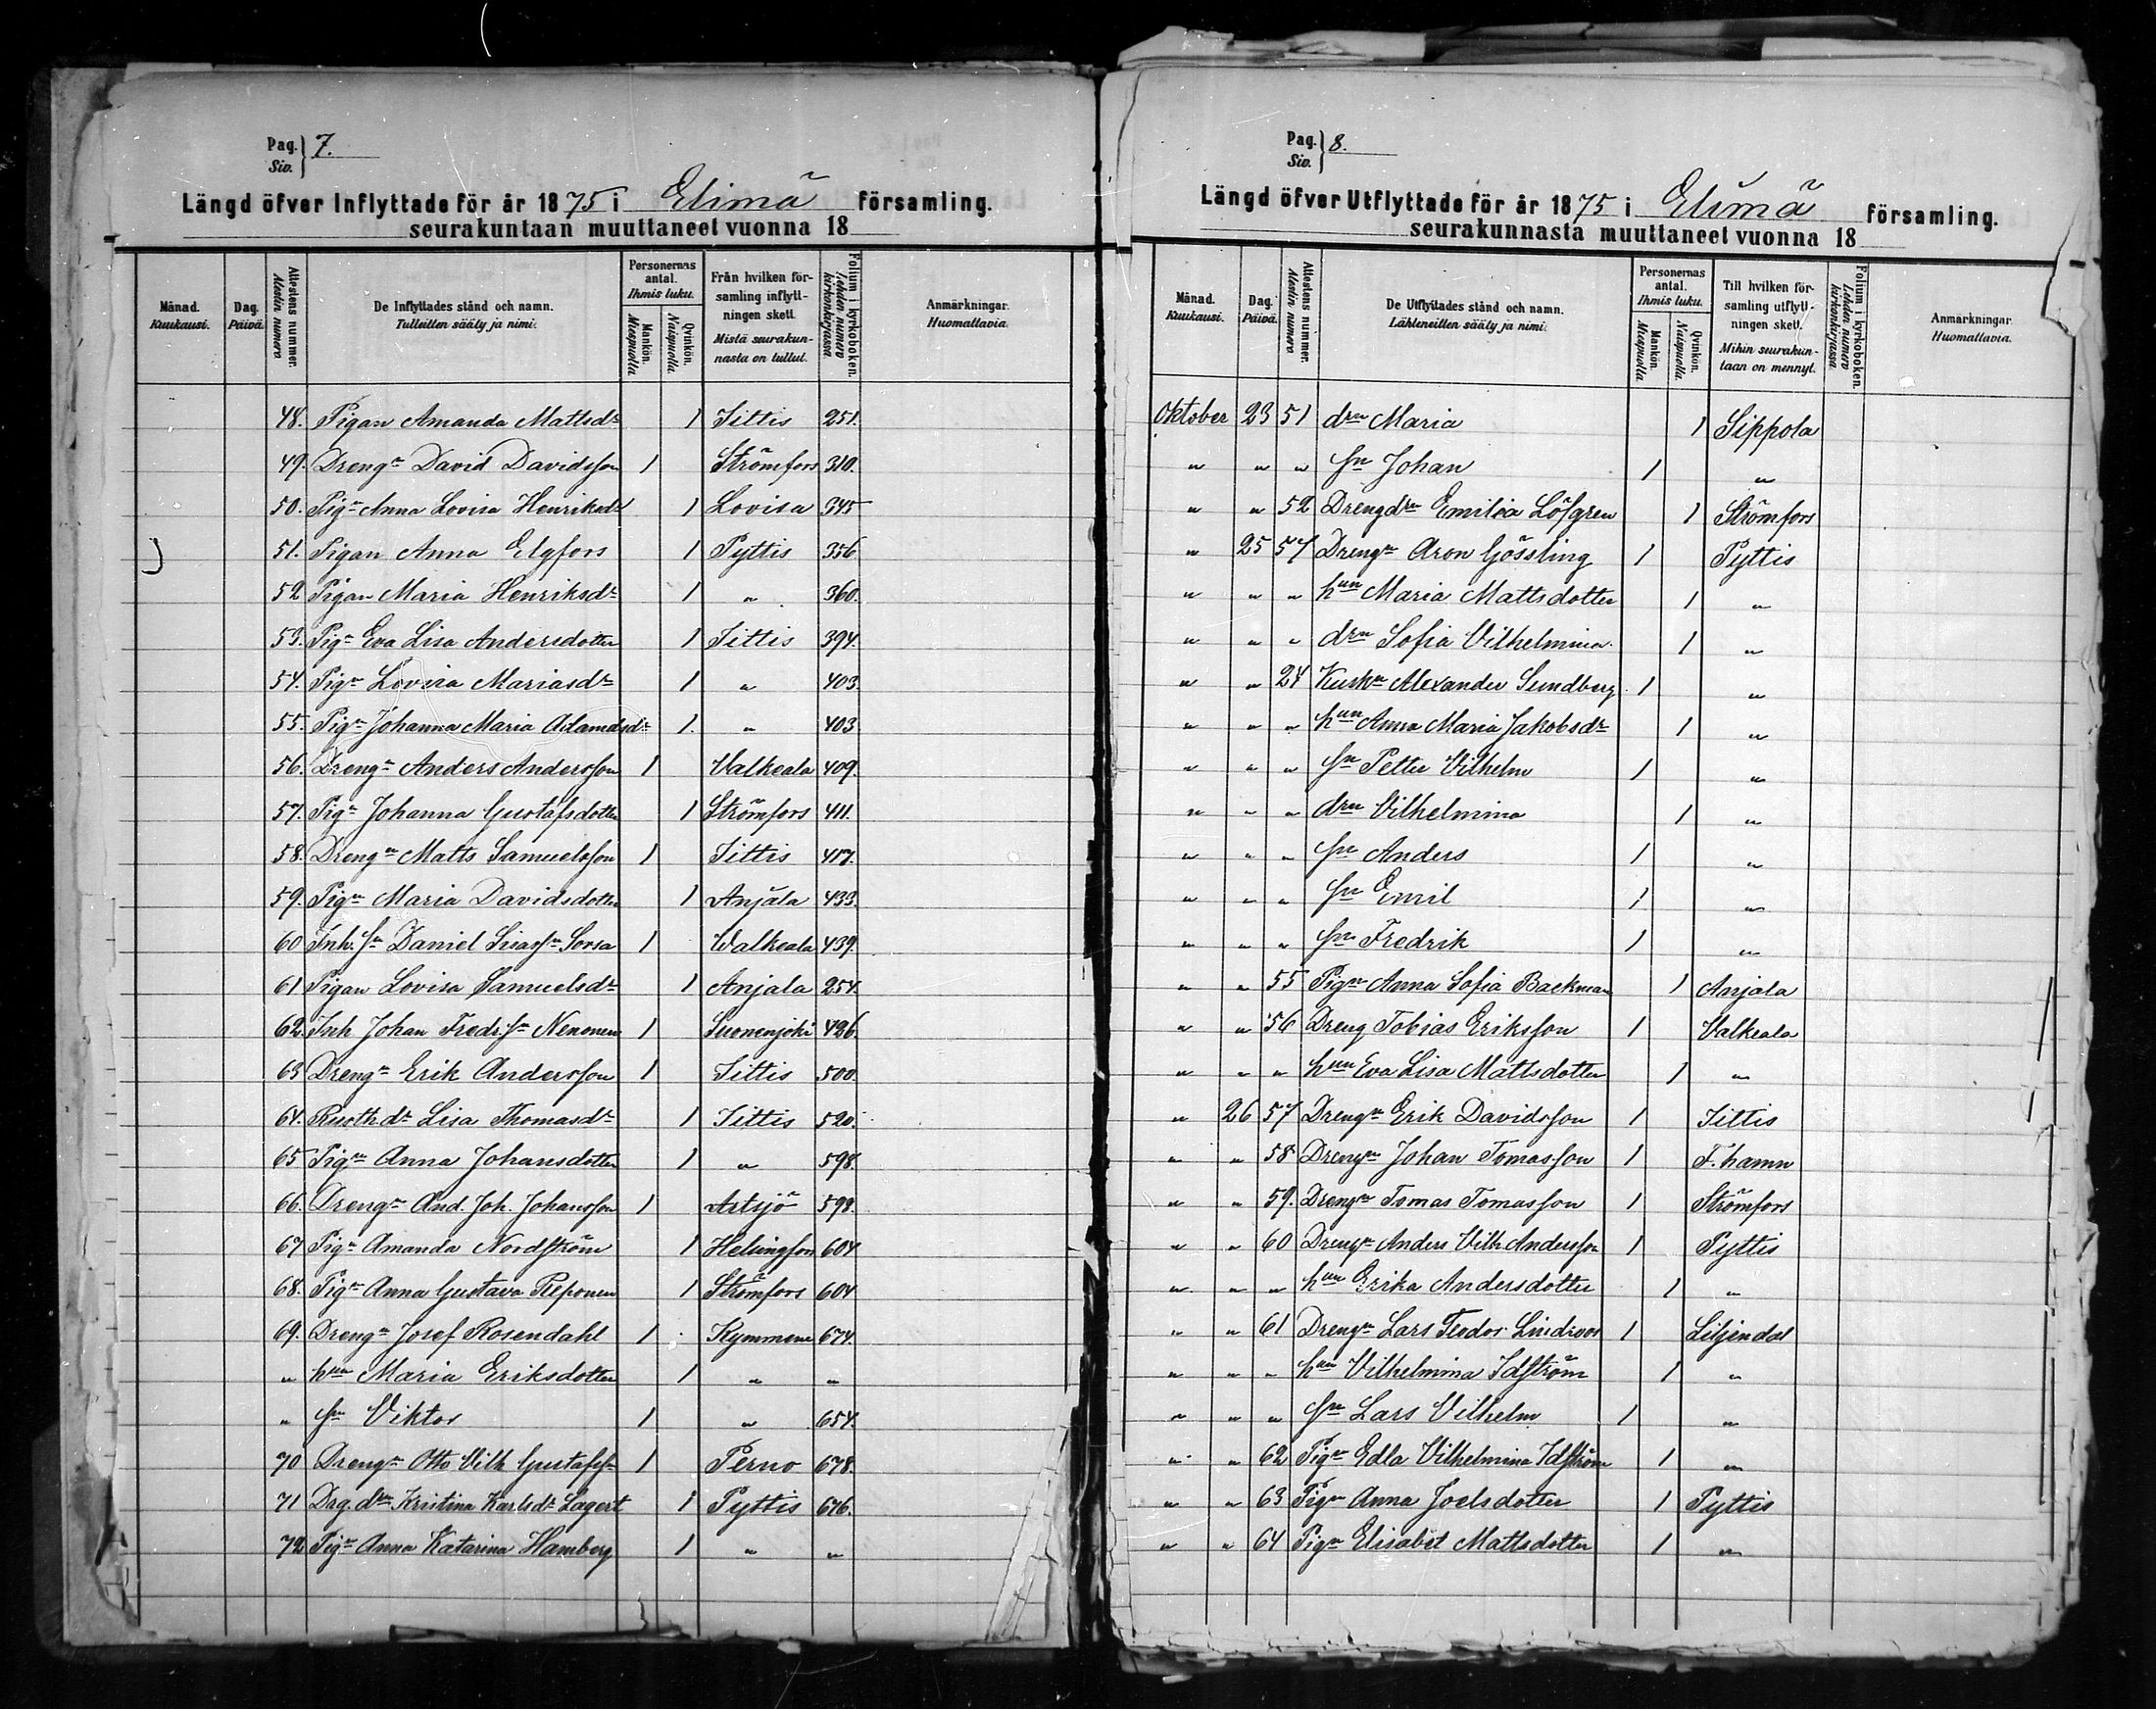 Pag. Siv. 7.
Längd öfver Inflyttade för år 1875 i Elimä församling.
seurakuntaan muuttaneet vuonna 18
Månad. Kuukausi. Dag. Päivä. Attestens nummer. Alestin numero De Inflyttades stånd och namn. Tulleitten sääty ja nimi. Personernas antal. Ihmis luku. Mankön. Miespuolia Qvinkön. Naispuolia Från hvilken församling inflyttningen skett. Mistä seurakunnasta on tullut. Folium i kyrkoboken. Lehden numero kirkonkirjassa Anmärkningar. Huomattavia.
48. Pigan Amanda Mattsdr 1 Jittis 251.
49. Drengn David Davidsson 1 Strömfors 310.
50. Pign Anna Lovisa Henriksdr 1 Lovisa 345
51. Pigan Anna Elgfors 1 Pyttis 356
52 Pigan Maria Henriksdr 1 " 360.
53. Pign Eva Lisa Andersdotter 1 Jittis 394.
54. Pign Lovisa Mariasdr 1 " 403.
55. Pign Johanna Maria Adamsdr 1. " 403
56. Drengn Anders Andersson 1 Valkeala 409.
57. Pign Johanna Gustafsdotter 1 Strömfors 411.
58. Drengn Matts Samuelsson 1 Jittis 417.
59. Pign Maria Davidsdotter 1 Anjala 433.
60 Inh. sn Daniel Lisassn Sorsa 1 Walkeala 439.
61 Pigan Lovisa Samuelsdr 1 Anjala 254.
62. Inh Johan Fredr.sn Nenonen 1 Suonenjoki 426.
63 Drengn Erik Andersson 1 Jittis 500.
64. Rusth.dr Lisa Thomasdr 1 Jittis 520.
65 Pign Anna Johansdotter 1 " 598.
66. Drengn And. Joh. Johansson 1 Artsjö 598.
67 Pign Amanda Nordström 1 Helsingfors 604
68. Pign Anna Gustava Reponen 1 Strömfors 604
69. Drengn Josef Rosendahl 1 Kymmene 674.
" hun Maria Eriksdotter 1 " "
" sn Viktor 1 " 654.
70 Drengn Otto Vilh Gustafssn 1 Perno 678.
71 Drg.drn Kristina Karlsdr Lagert 1 Pyttis 676.
72 Pign Anna Katarina Hamberg 1 " "
Pag. Siv. 8.
Längd öfver Utflyttade för år 1875 i Elimä församling.
seurakunnasta muuttaneet vuonna 18
Månad. Kuukausi. Dag. Päivä. Attestens nummer. Alestin numero De Utflyttades stånd och namn. Lähteneitten sääty ja nimi. Personernas antal. Ihmis luku. Mankön. Miespuolia Qvinkön. Naispuolia Till hvilken församling utflyttningen skett. Mihin seurakuntaan on mennyt. Folium i kyrkoboken. Lehden numero kirkonkirjassa. Anmärkningar. Huomattavia.
Oktober 23 51 drn Maria 1 Sippola
" " " sn Johan 1 "
" " 52 Drengdrn Emilia Löfgren 1 Strömfors
" 25 57 Drengn Aron Gössling 1 Pyttis
" " " hun Maria Mattsdotter 1 "
" " " drn Sofia Vilhelmina 1 "
" " 24 Kuskn Alexander Sundberg 1 "
" " " hun Anna Maria Jakobsdr 1 "
" " " sn Petter Vilhelm 1 "
" " " drn Vilhelmina 1 "
" " " sn Anders 1 "
" " " sn Emil 1 "
" " " sn Fredrik 1 "
" " 55 Pign Anna Sofia Backman 1 Anjala
" " 56 Dreng Tobias Eriksson 1 Valkeala
" " " hun Eva Lisa Mattsdotter 1 "
" 26 57 Drengn Erik Davidsson 1 Jittis
" " 58 Drengn Johan Tomasson 1 F. hamn
" " 59. Drengn Tomas Tomasson 1 Strömfors
" " 60 Drengn Anders Vilh Andersson 1 Pyttis
" " " hun Erika Andersdotter 1 "
" " 61 Drengn Lars Teodor Lindroos 1 Liljendal
" " " hun Vilhelmina Idström 1 "
" " " sn Lars Vilhelm 1 "
" " 62 Pign Edla Vilhelmina Idström 1 "
" " 63 Pign Anna Joelsdotter 1 Pyttis
" " 64 Pign Elisabet Mattsdotter 1 "